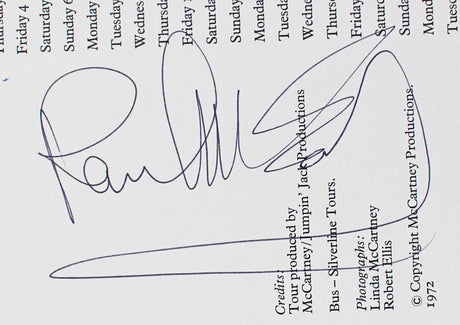 Thursday
Friday 4
Saturday
Sunday 6
Monday
Tuesday
Wednes
Thursda
Friday
Saturday
Sunday
Monda
Tuesda
Wedne
Thursd
Friday
Saturd
Sunda
Monda
Tuesd
Paul
Credits:
Tour produced by
McCartney/Jumpin' Jack Productions
Bus – Silverline Tours.
Photographs:
Linda McCartney
Robert Ellis
© Copyright McCartney Productions.
1972